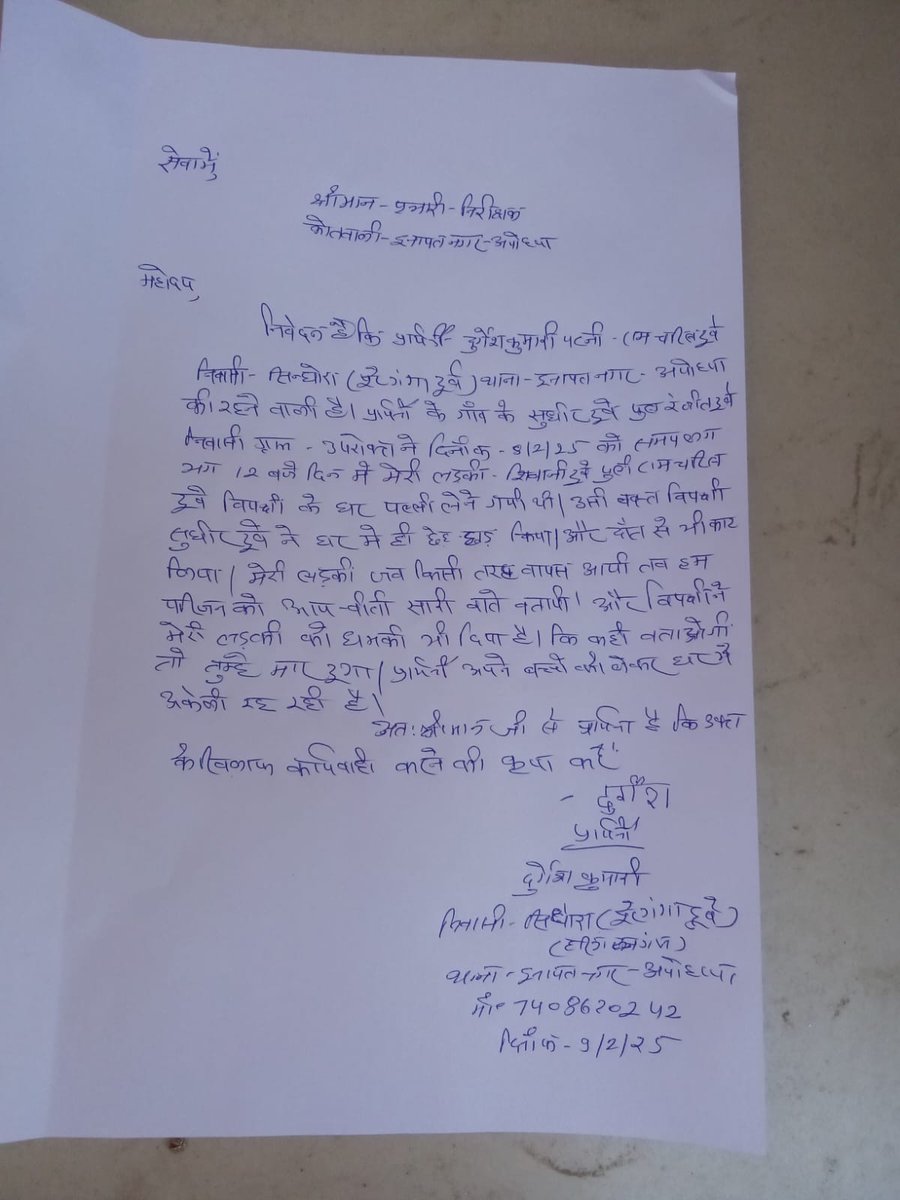 सेवामें
श्रीमान - प्रभारी - निरीक्षक
कोतवाली - इनायत नगर - अयोध्या
महोदय,
निवेदन है कि प्रार्थिनी दुर्गेश कुमारी पत्नी - राम चरित्र दुबे
निवासी - सिन्धौरा ( दुबे) थाना - इनायत नगर - अयोध्या
की रहने वाली है। प्रार्थिनी के गाँव के सुधीर दुबे पुत्र रंजीत दुबे
निवासी ग्राम - उपरोक्त ने दिनाँक - 8/2/25 को समय लग
भग 12 बजे दिन में मेरी लड़की - शिवानी दुबे पुत्री राम चरित्र
दुबे विपक्षी के घर पल्ली लेने गयी थी। उसी वक्त विपक्षी
सुधीर दुबे ने घर मे ही छेड़ छाड़ किया। और दाँत से भी काट
लिया। मेरी लड़की जब किसी तरह वापस आयी तब हम
परिजन को आप-बीती सारी बाते बतायी। और विपक्षी ने
मेरी लड़की को धमकी भी दिया है। कि कही बताओगी
तो तुम्हे मार दूगा। प्रार्थिनी अपने बच्चो को लेकर घर मे
अकेली रह रही है।
अतः श्रीमान जी से प्रार्थना है कि उक्त
के खिलाफ कार्यवाही करने की कृपा करें
- दुर्गेश
प्रार्थिनी
दुर्गेश कुमारी
निवासी - सिन्धौरा ( दुबे)
थाना - इनायत नगर - अयोध्या
मो॰ 7408620242
दिनाँक - 9/2/25